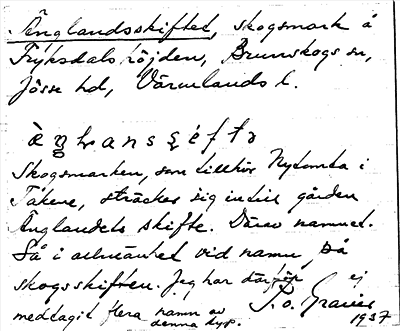 Änglandsskiftet, skogsmark å
Fryksdalshöjden, Brunskogs sn,
Jösse hd, Värmlands l.
Skogsmarken, som tillhör Nytomta i
Täkene, sträcker sig intill gården
Änglandets skifte. Därav namnet.
Så i allmänhet vid namn på
skogsskiften. Jag har därför ej
medtagit flera namn av
denna typ.
1937